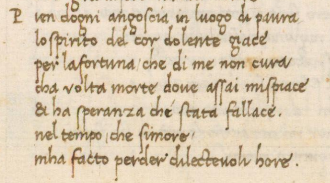 P ien dogni angoscia in luogo di paura
lo spirito del cor dolente giace
per la fortuna che di me non cura
cha volta morte dove assai mi spiace
& ha speranza che stata fallace.
nel tempo che si more
mha facto perder dilectevoli hore.